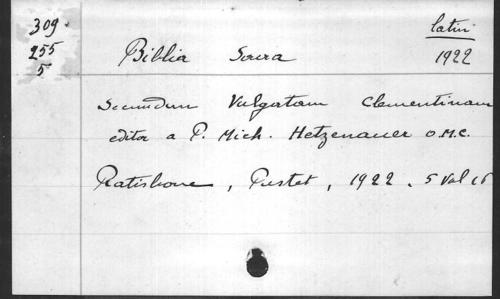 309
255
5
latin
Biblia Sacra 1922
Secundum Vulgatam Clementinam
editor a P. Mich. Hetzenauer O.M.C.
Ratisbone, Pustet, 1922. 5 Vol 16